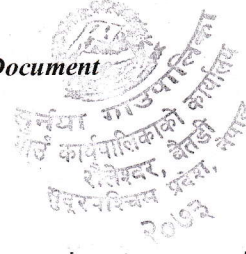 Document
गाउँपालिका
गाउँ कार्यपालिकाको कार्यालय
बैतडी, नेपाल
सुदूरपश्चिम प्रदेश,
२०७३